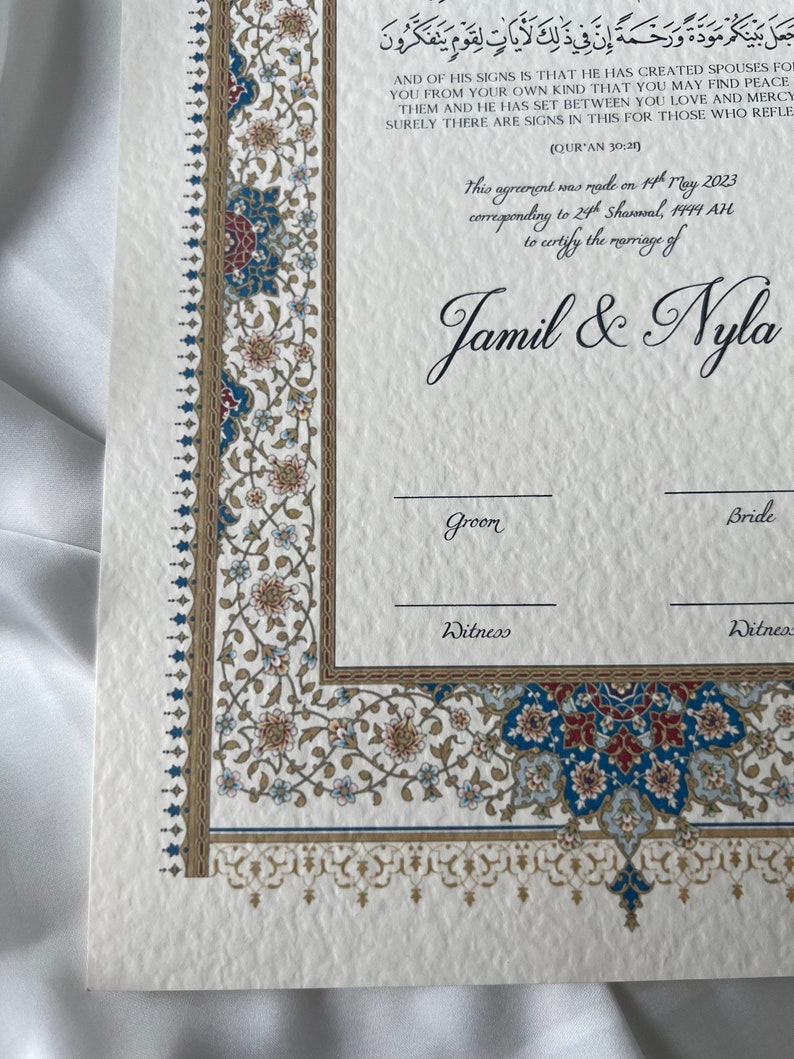 جَعَلَ بَيْنَكُمْ مَوَدَّةً وَرَحْمَةً إِنَّ فِي ذَٰلِكَ لَآيَاتٍ لِقَوْمٍ يَتَفَكَّرُونَ
AND OF HIS SIGNS IS THAT HE HAS CREATED SPOUSES FO
YOU FROM YOUR OWN KIND THAT YOU MAY FIND PEACE
THEM AND HE HAS SET BETWEEN YOU LOVE AND MERCY
SURELY THERE ARE SIGNS IN THIS FOR THOSE WHO REFLE
(QUR'AN 30:21)
This agreement was made on 14th May 2023
corresponding to 24th Shawwal, 1444 AH
to certify the marriage of
Jamil & Nyla
Groom Bride
Witness Witness